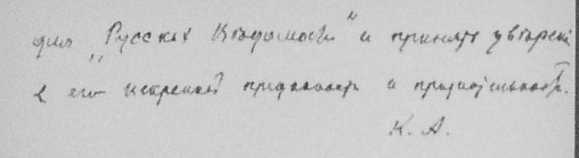 для „Русских Ведомостей" и принять уверения
в его искренней преданности и признательности.
К. А.